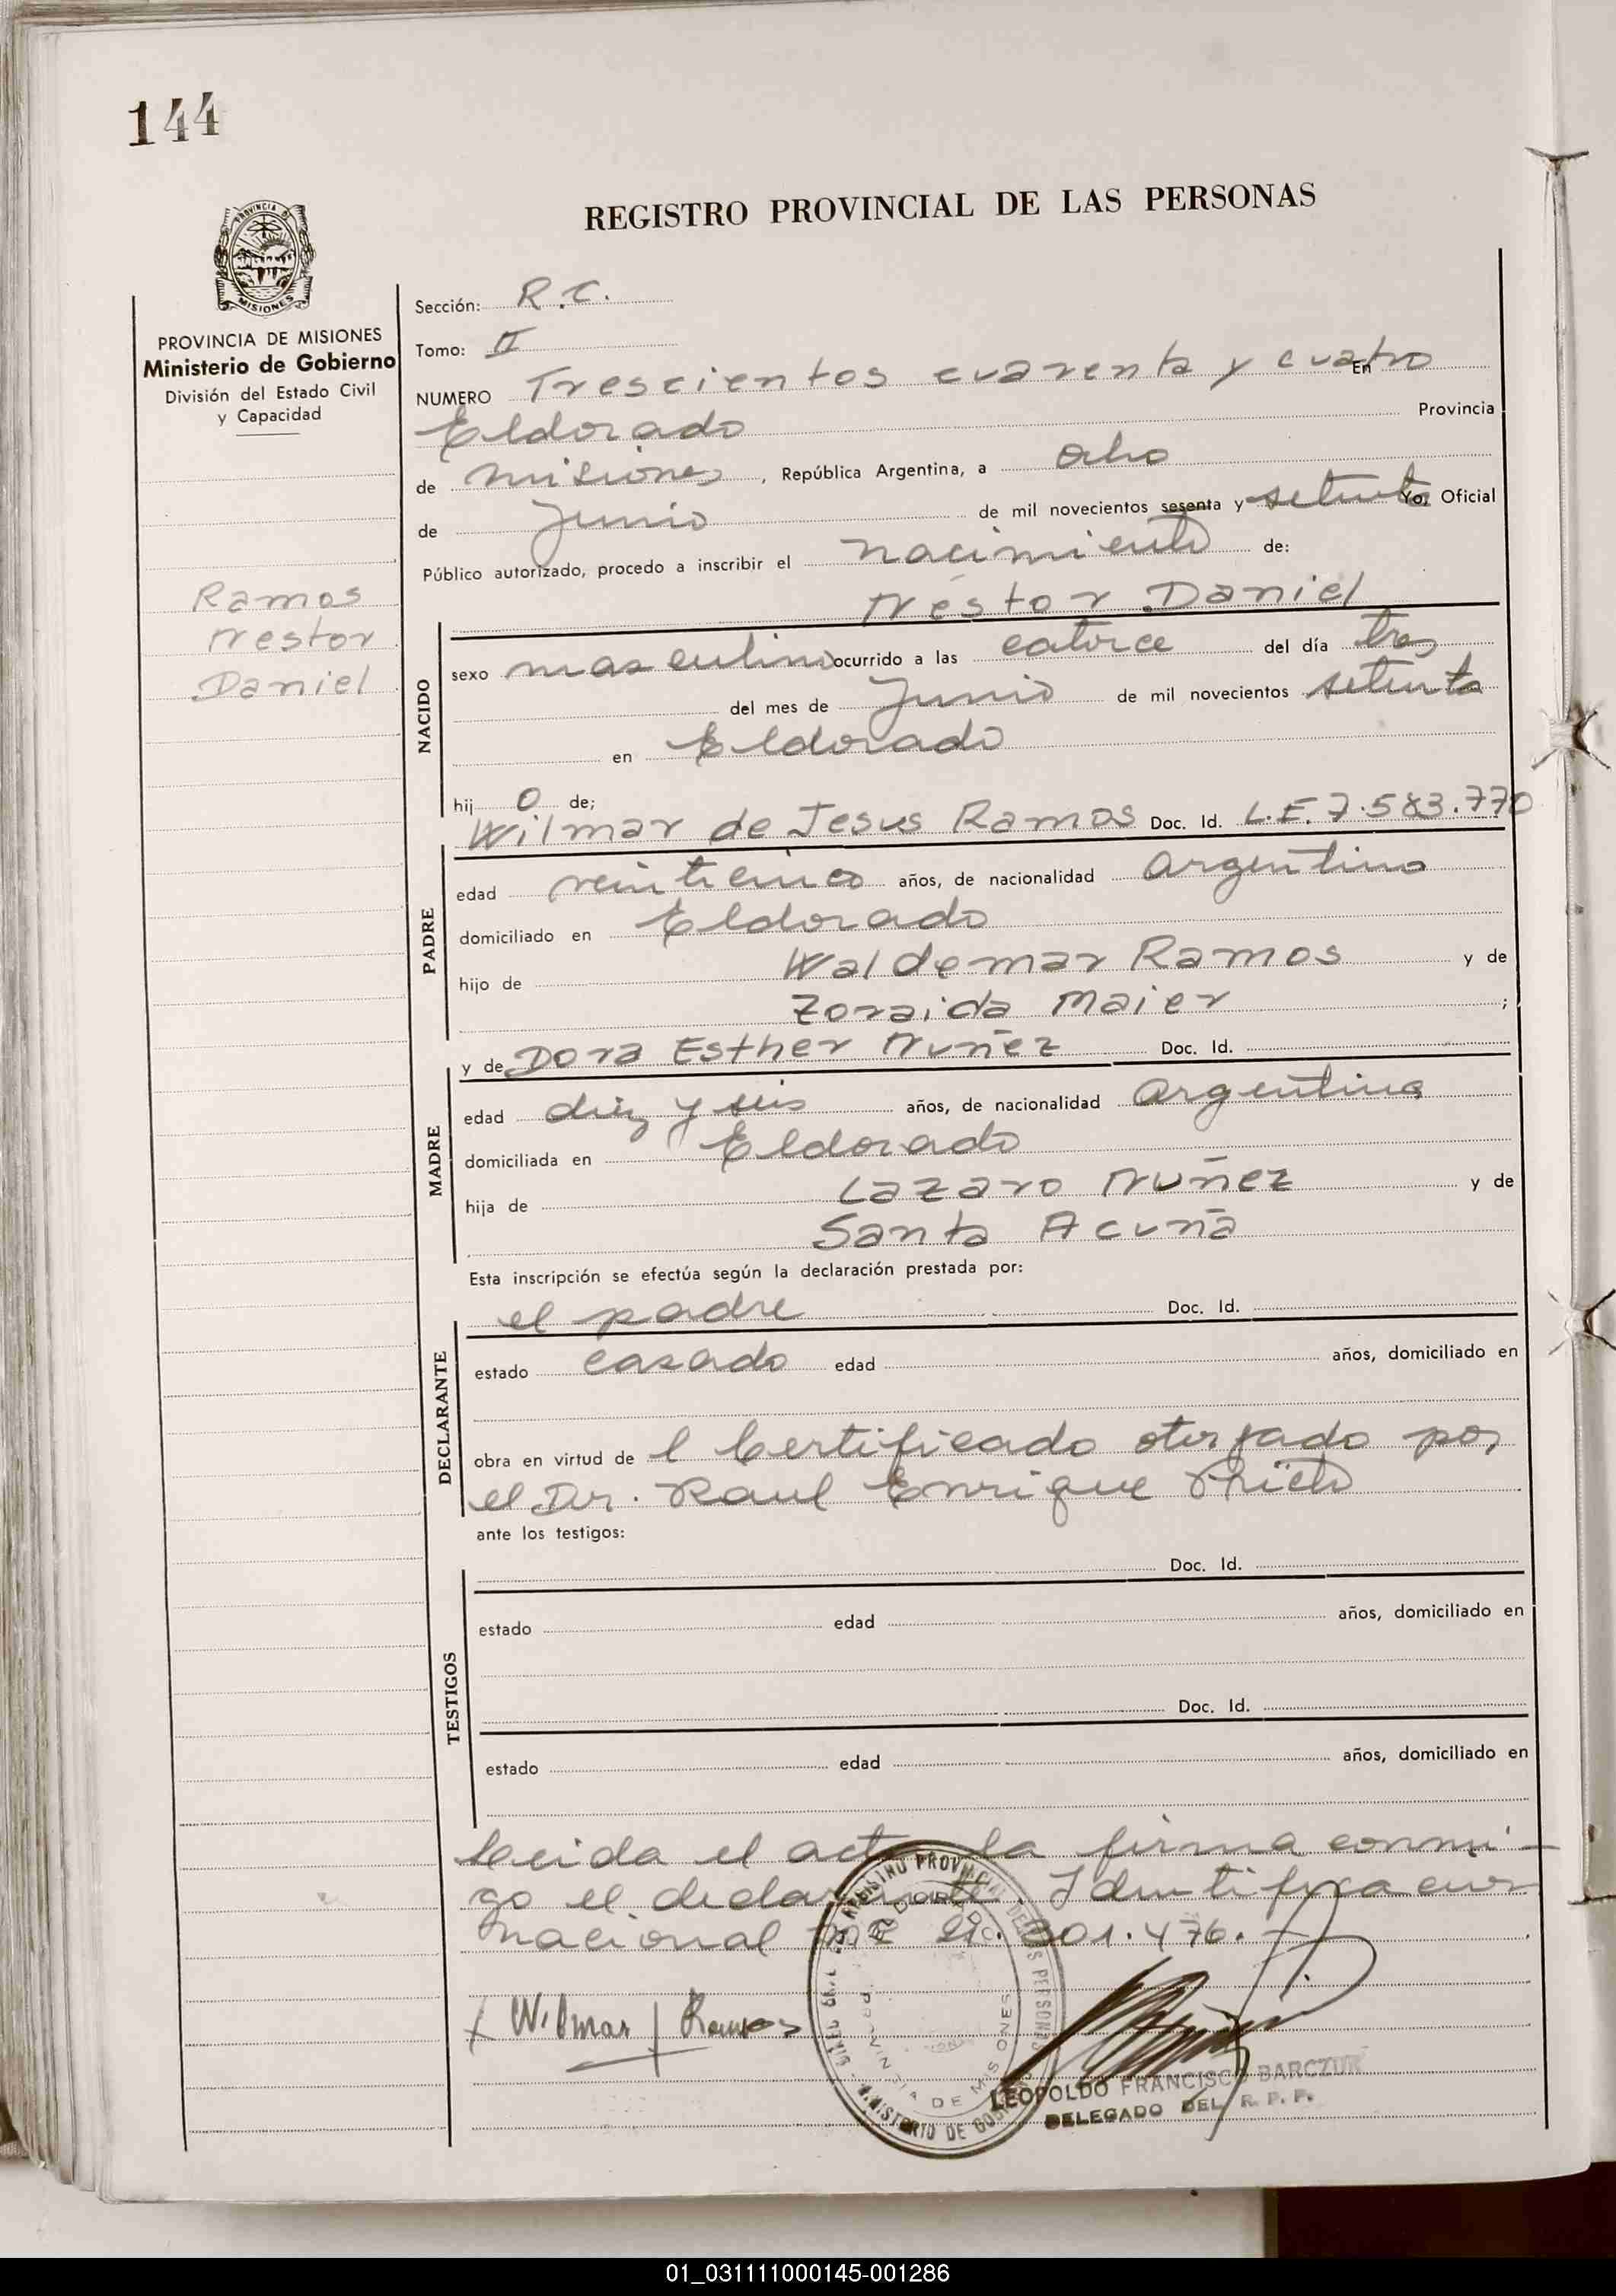 144
REGISTRO PROVINCIAL DE LAS PERSONAS
PROVINCIA DE MISIONES
Ministerio de Gobierno
División del Estado Civil
y Capacidad
Ramos
Nestor
Daniel
Sección: R.C.
Tomo: II
NUMERO Trescientos cuarenta y cuatro En
Eldorado Provincia
de Misiones, República Argentina, a ocho
de Junio de mil novecientos sesenta y setenta Yo, Oficial
Público autorizado, procedo a inscribir el nacimiento de:
Néstor Daniel
NACIDO
sexo masculino ocurrido a las catorce del día tres
del mes de Junio de mil novecientos setenta
en Eldorado
hij o de;
Wilmar de Jesus Ramos Doc. Id. L.E. 7.583.770
PADRE
edad veinticinco años, de nacionalidad Argentino
domiciliado en Eldorado
hijo de Waldemar Ramos y de
Zoraida Maier ;
y de Dora Esther Nuñez Doc. Id.
MADRE
edad diez y seis años, de nacionalidad Argentina
domiciliada en Eldorado
hija de Lazaro Nuñez y de
Santa Acuña
Esta inscripción se efectúa según la declaración prestada por:
el padre Doc. Id.
DECLARANTE
estado casado edad años, domiciliado en
obra en virtud de l Certificado otorgado por
el Dr. Raul Enrique
ante los testigos:
Doc. Id.
TESTIGOS
estado edad años, domiciliado en
Doc. Id.
estado edad años, domiciliado en
Leida el acta la firma conmi-
go el declarante. Identificacion
nacional Nº 21.301.476.
Wilmar J Ramos
REGISTRO PROVINCIAL DE LAS PERSONAS
MINISTERIO DE
PROVINCIA DE MISIONES
LEOPOLDO FRANCISCO BARCZUK
DELEGADO DEL R. P. P.
01_031111000145-001286